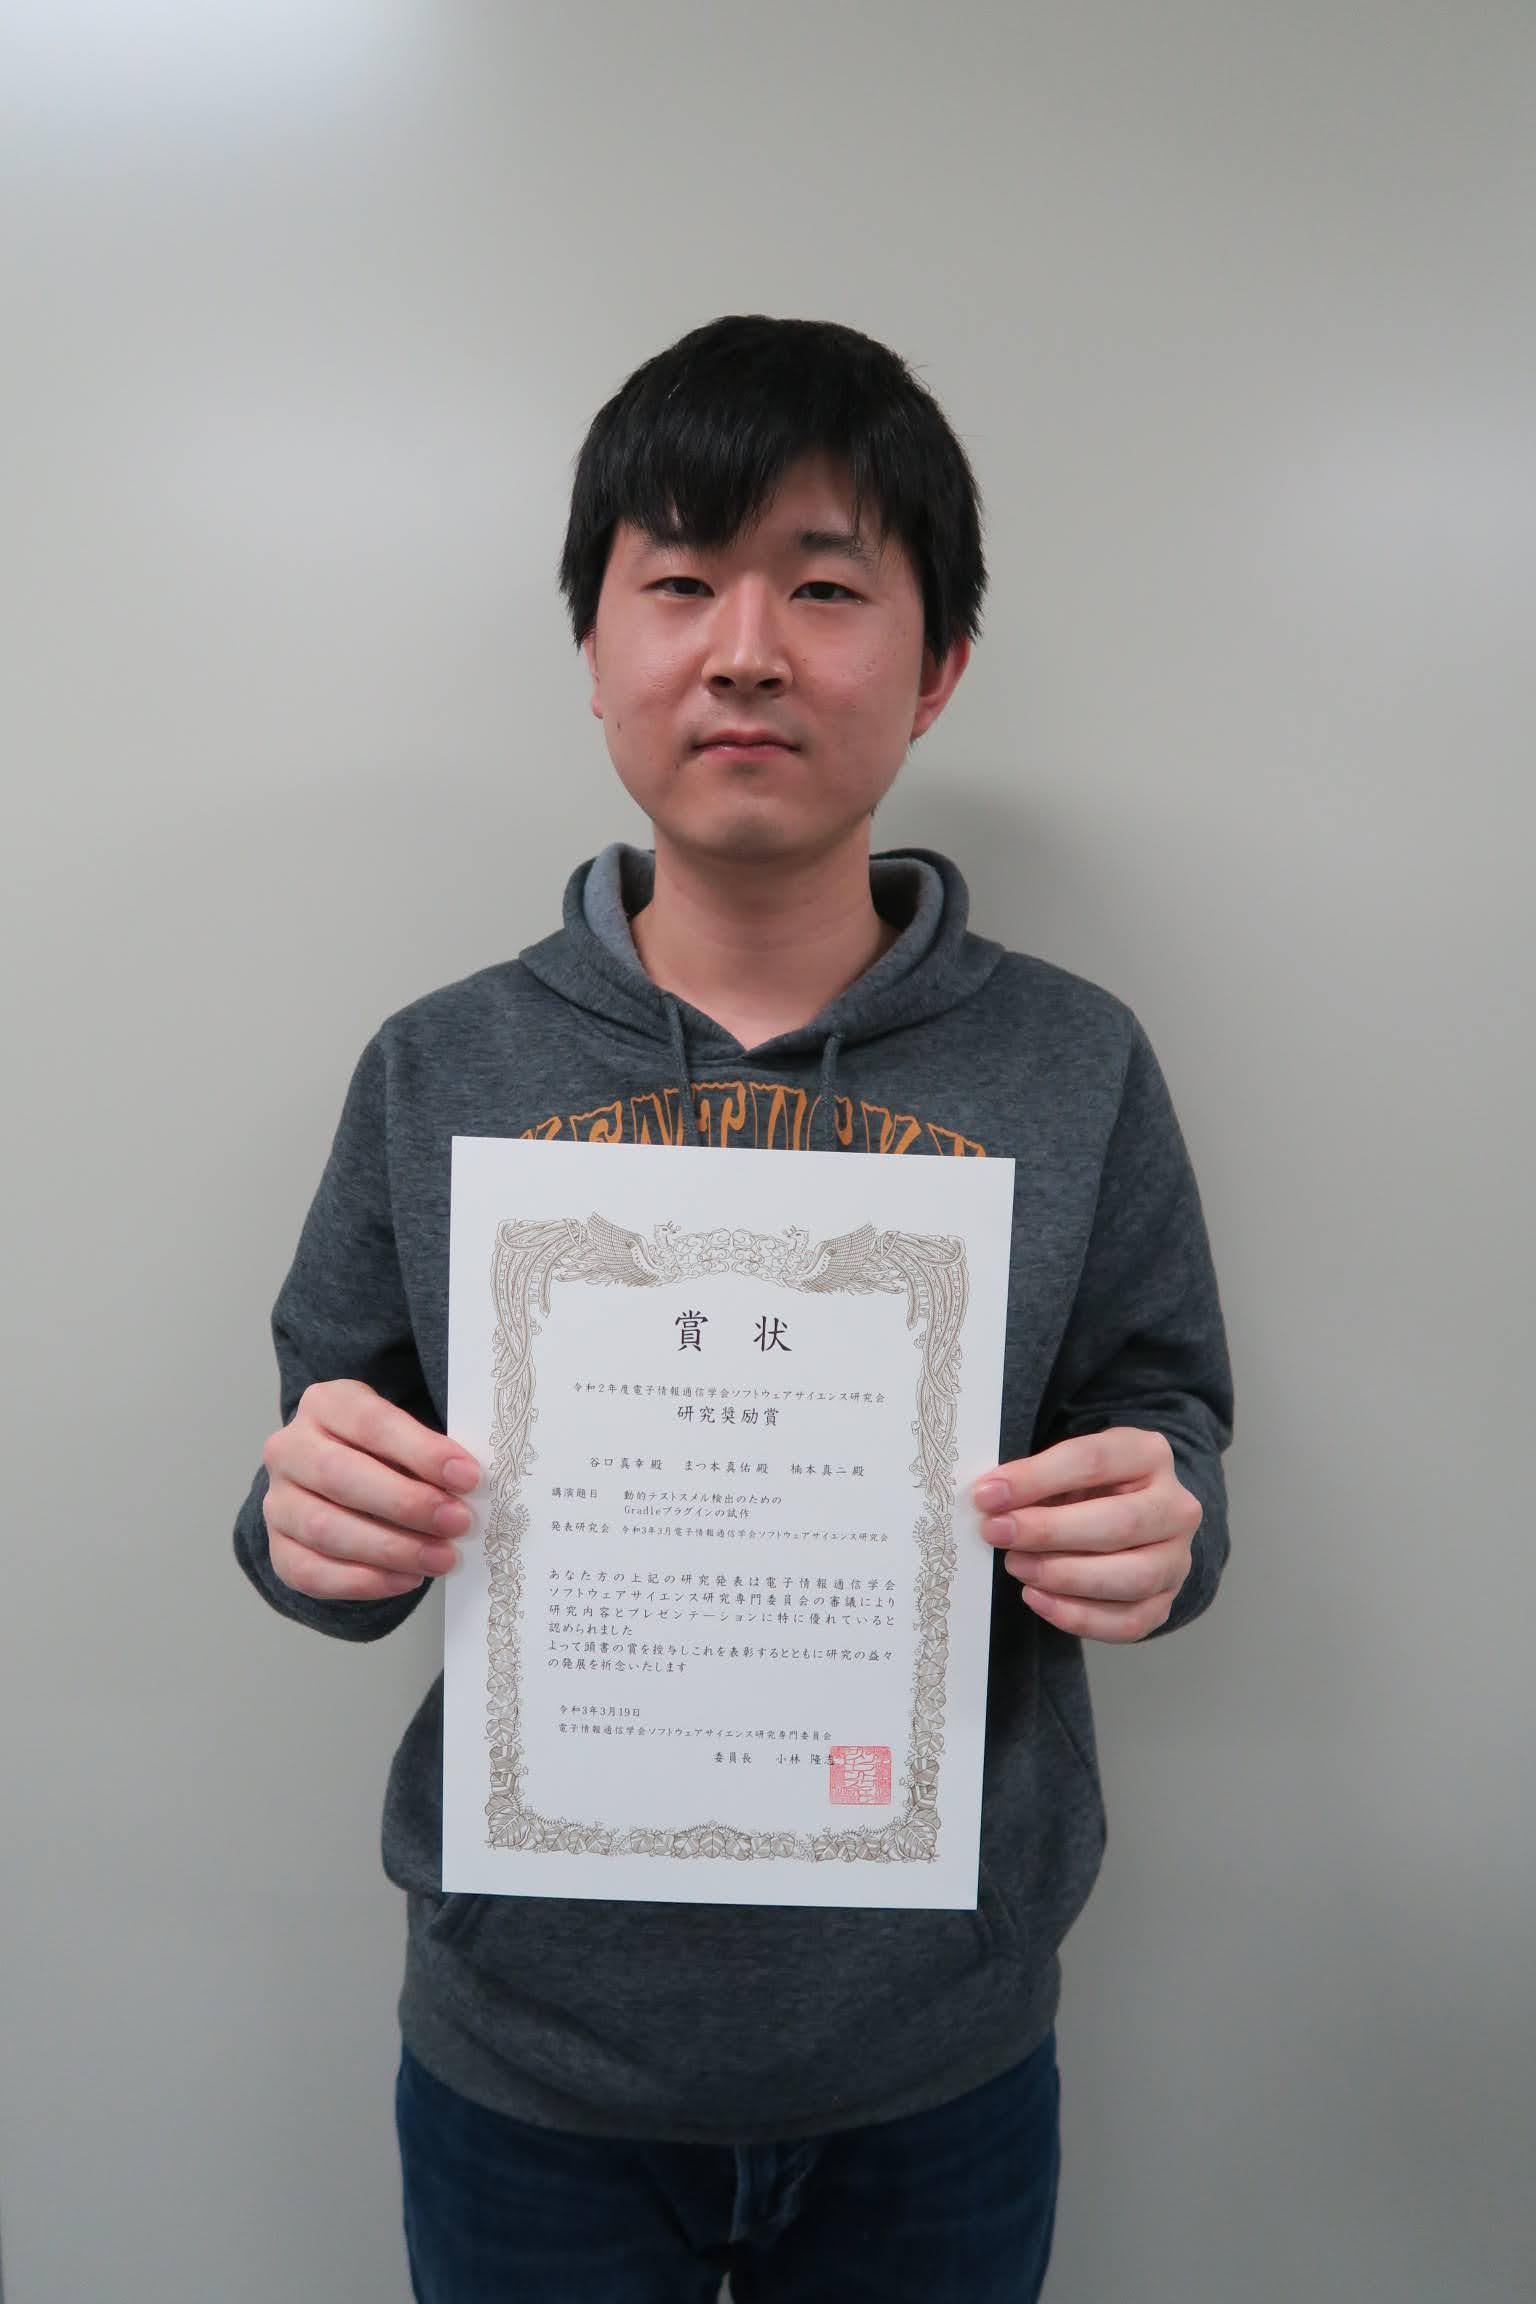 KENTUCKY
賞 状
令和2年度電子情報通信学会ソフトウェアサイエンス研究会
研究奨励賞
谷口真幸殿 まつ本真佑殿 楠本真二殿
講演題目 動的テストスメル検出のための
Gradleプラグインの試作
発表研究会 令和3年3月電子情報通信学会ソフトウェアサイエンス研究会
あなた方の上記の研究発表は電子情報通信学会
ソフトウェアサイエンス研究専門委員会の審議により
研究内容とプレゼンテーションに特に優れていると
認められました
よって頭書の賞を授与しこれを表彰するとともに研究の益々
の発展を祈念いたします
令和3年3月19日
電子情報通信学会ソフトウェアサイエンス研究専門委員会
委員長 小林 隆志